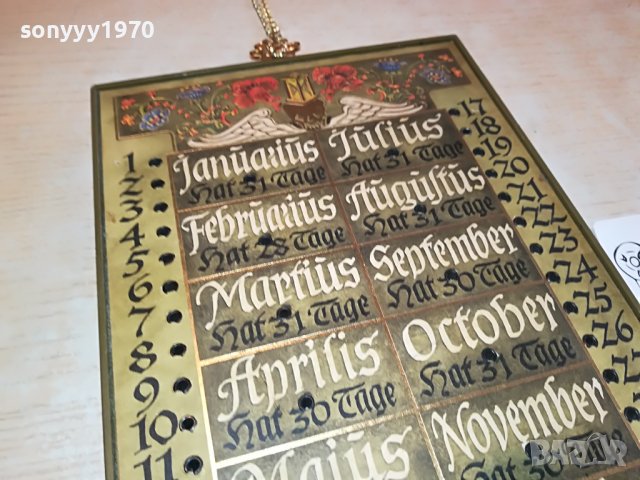 sonyyy1970
Januarius
Hat 31 Tage
Julius
Hat 31 Tage
Februarius
Hat 28 Tage
Augustus
Hat 31 Tage
Martius
Hat 31 Tage
September
Hat 30 Tage
Aprilis
Hat 30 Tage
October
Hat 31 Tage
Maius
November
Hat 30 Tage
1
2
3
4
5
6
7
8
9
10
11
17
18
19
20
21
22
23
24
25
26
27
BAZAR